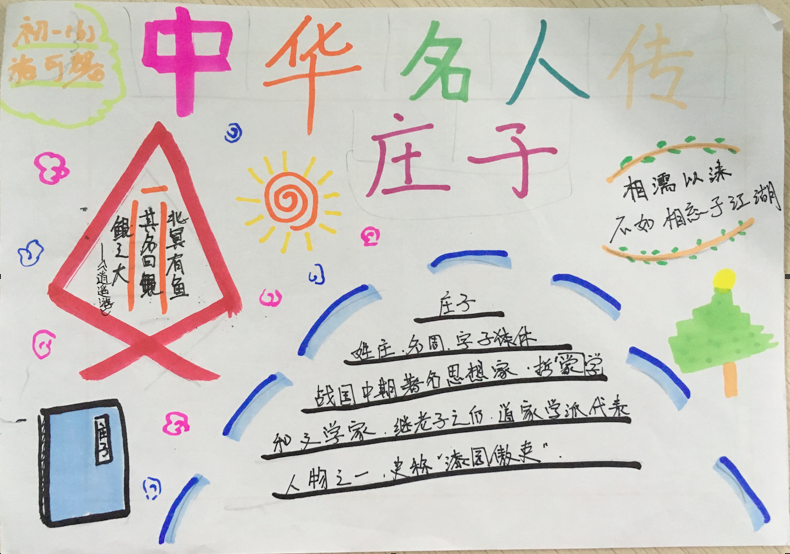 初一
中华名人传
庄子
相濡以沫
不如相忘于江湖
北冥有鱼
其名曰鲲
鲲之大
——《逍遥游》
庄子
姓庄、名周、字子休
战国中期著名思想家、哲家学
和文学家、继老子之后、道家学派代表
人物之一、史称“漆园傲吏”.
庄子